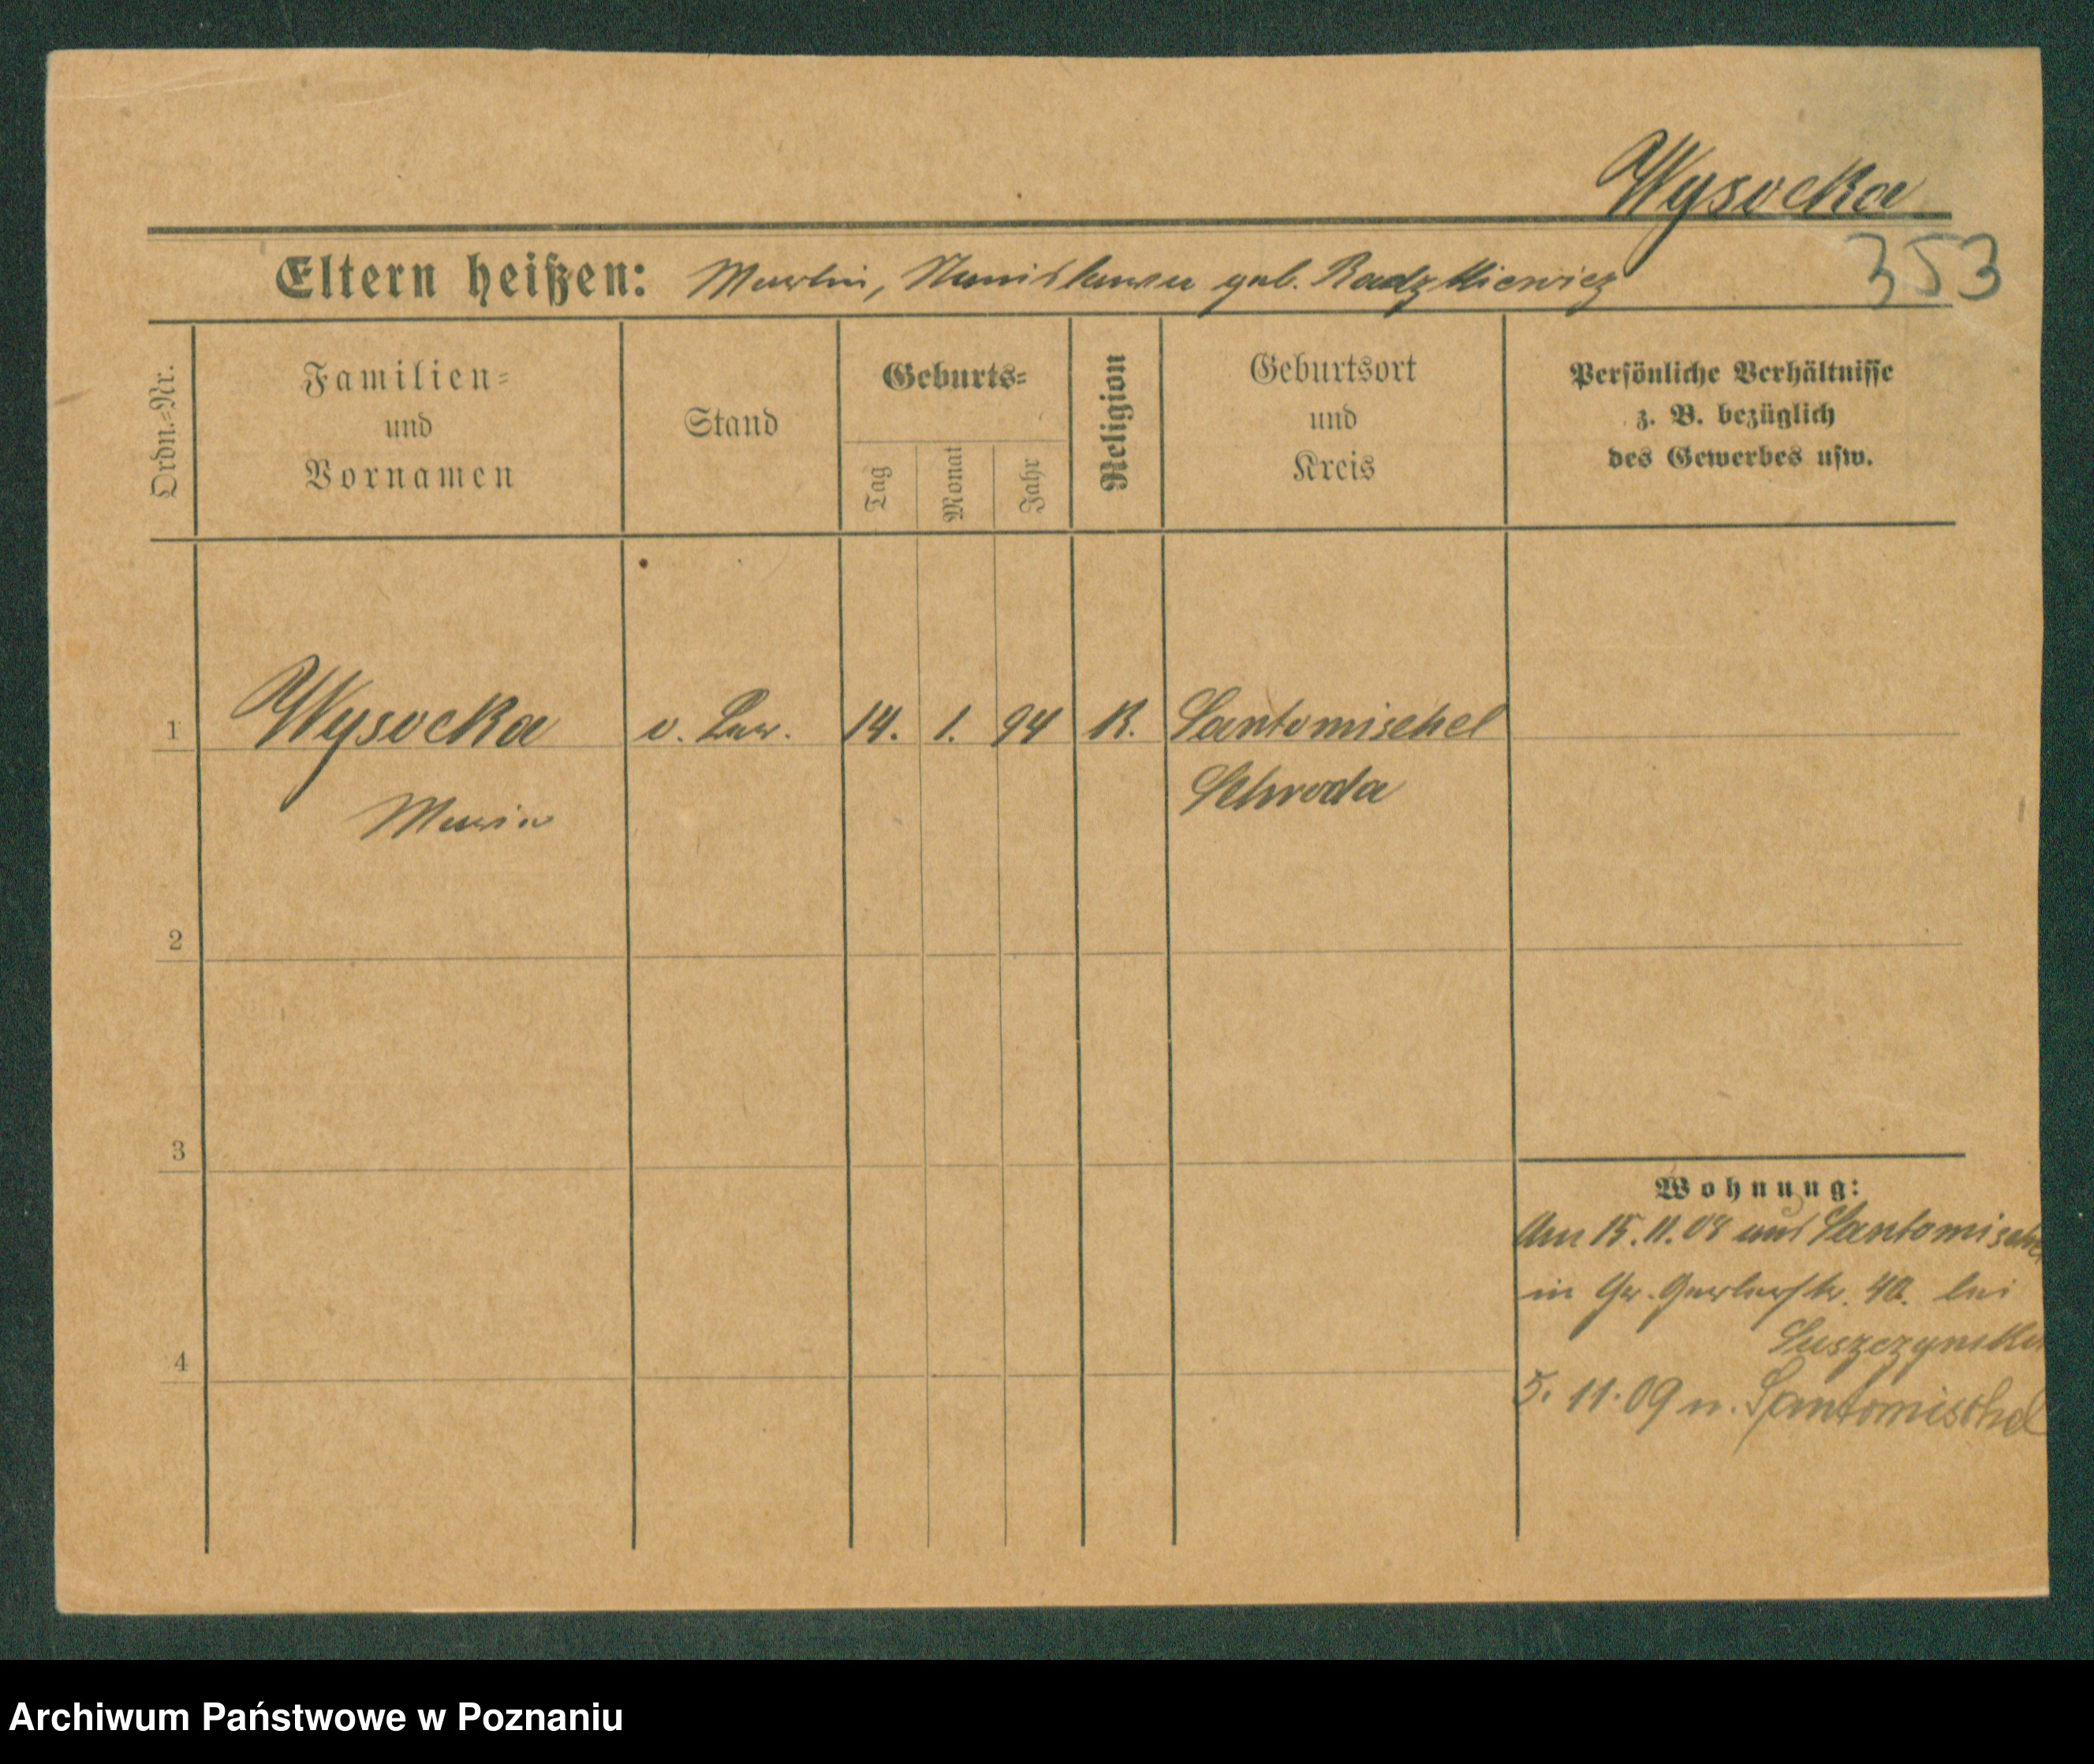 Wysocka
353
Eltern heißen: Martin, Stanislawa geb. Radzkiewicz
Ordn.=Nr.
Familien=
und
Vornamen
Stand
Geburts=
Tag
Monat
Jahr
Religion
Geburtsort
und
Kreis
Persönliche Verhältnisse
z. B. bezüglich
des Gewerbes usw.
1 Wysocka o. 14. 1. 94 K. Santomischel
Maria Schroda
2
3
4
Wohnung:
Am 15.11.08 aus Santomischel
in Gr. Gerberstr. 40. bei
5. 11. 09 n. Santomischel
Archiwum Państwowe w Poznaniu